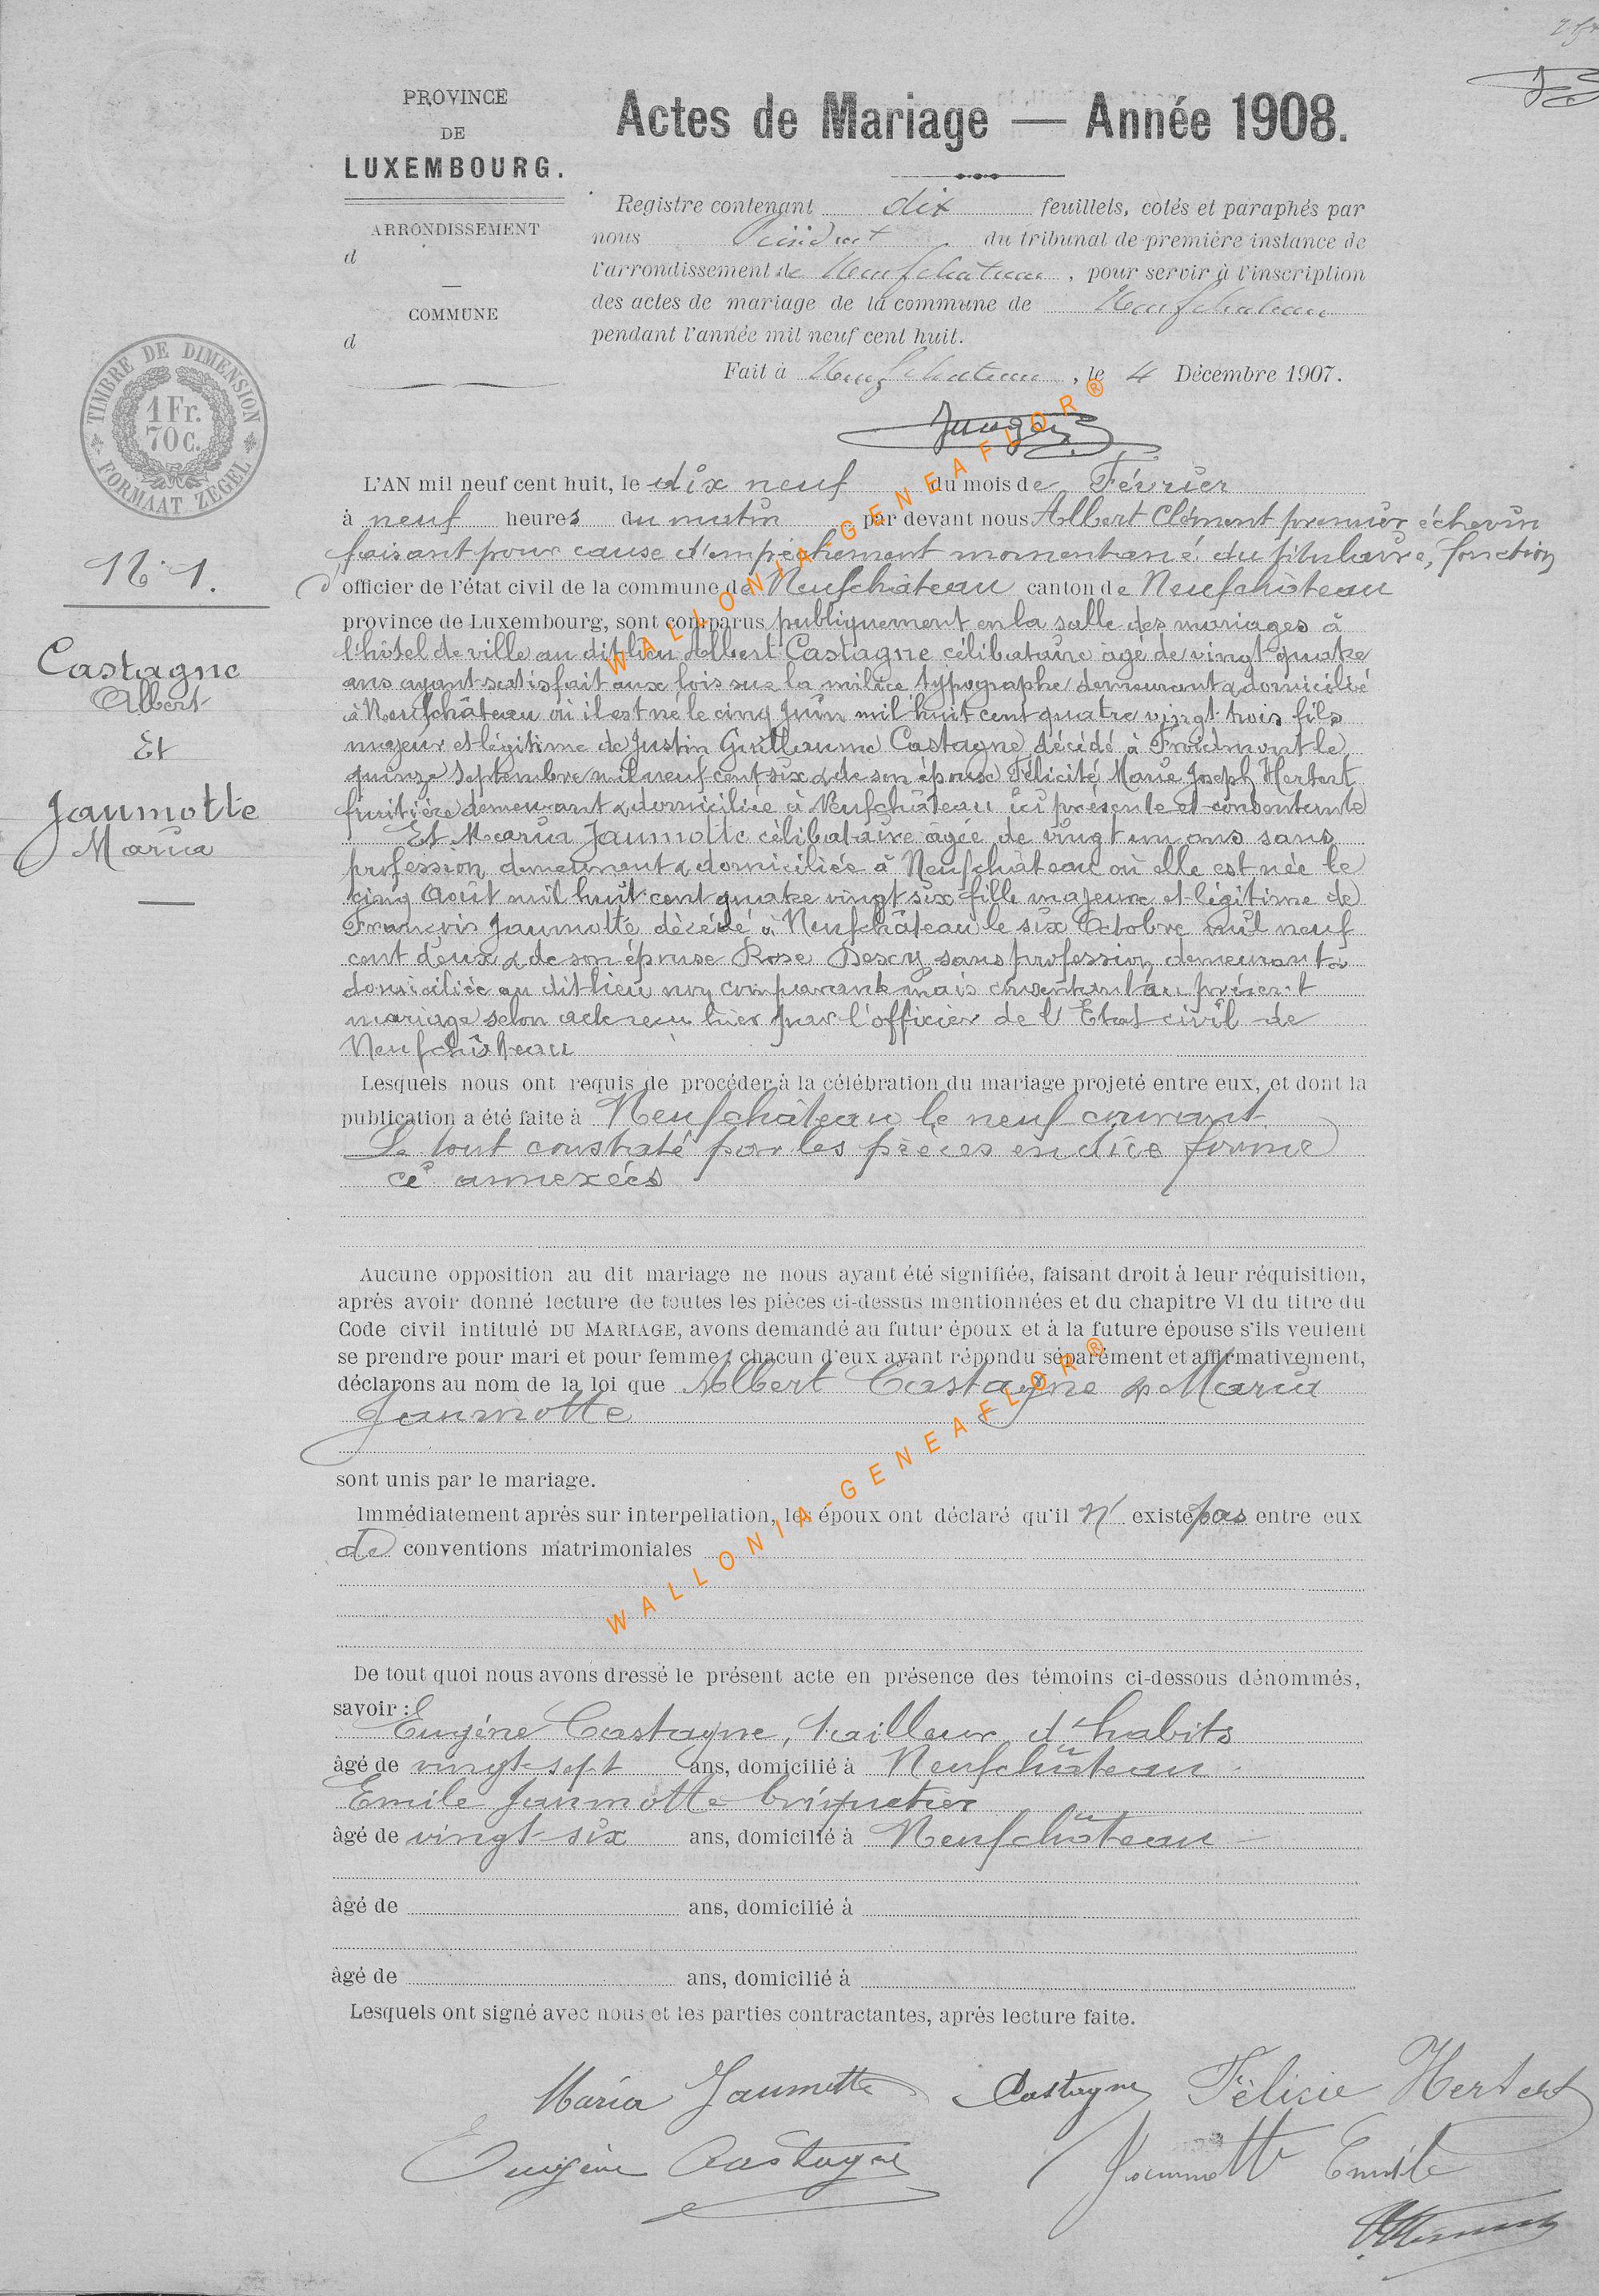 PROVINCE
DE
LUXEMBOURG.
ARRONDISSEMENT
d
COMMUNE
d
Actes de Mariage — Année 1908.
Registre contenant dix feuillets, cotés et paraphés par
nous Président du tribunal de première instance de
l'arrondissement de Neufchateau, pour servir à l'inscription
des actes de mariage de la commune de Neufchateau
pendant l'année mil neuf cent huit.
Fait à Neufchateau, le 4 Décembre 1907.
TIMBRE DE DIMENSION
1 Fr.
70 c.
FORMAAT ZEGEL
N° 1.
Castagne
Albert
Et
Jaumotte
Maria
L'AN mil neuf cent huit, le dix neuf du mois de Février
à neuf heures du matin par devant nous Albert Clément premier échevin
faisant pour cause d'empêchement momentané du titulaire, fonction
d'officier de l'état civil de la commune de Neufchâteau canton de Neufchâteau
province de Luxembourg, sont comparus publiquement en la salle des mariages à
l'hôtel de ville au dit lieu Albert Castagne célibataire agé de vingt quatre
ans ayant satisfait aux lois sur la milice typographe demeurant & domicilié
à Neufchâteau où il est né le cinq Juin mil huit cent quatre vingt trois fils
majeur et légitime de Justin Guillaume Castagne décédé à Froidmont le
quinze Septembre mil neuf cent six & de son épouse Félicité Marie Joseph Herbert
fruitière demeurant & domiciliée à Neufchâteau ici présente et consentante
Et Maria Jaumotte célibataire âgée de vingt un ans sans
profession demeurant & domiciliée à Neufchâteau où elle est née le
cinq Août mil huit cent quatre vingt six fille majeure et légitime de
François Jaumotte décédé à Neufchâteau le six Octobre mil neuf
cent deux & de son épouse Rose Descy sans profession demeurant &
domiciliée au dit lieu non comparante mais consentant au présent
mariage selon acte reçu hier par l'officier de l'Etat civil de
Neufchâteau
Lesquels nous ont requis de procéder à la célébration du mariage projeté entre eux, et dont la
publication a été faite à Neufchâteau le neuf courant
Le tout constaté par les pièces en due forme
ci annexées
Aucune opposition au dit mariage ne nous ayant été signifiée, faisant droit à leur réquisition,
après avoir donné lecture de toutes les pièces ci-dessus mentionnées et du chapitre VI du titre du
Code civil intitulé DU MARIAGE, avons demandé au futur époux et à la future épouse s'ils veulent
se prendre pour mari et pour femme; chacun d'eux ayant répondu séparément et affirmativement,
déclarons au nom de la loi que Albert Castagne & Maria
Jaumotte
sont unis par le mariage.
Immédiatement après sur interpellation, les époux ont déclaré qu'il n' existe pas entre eux
de conventions matrimoniales
De tout quoi nous avons dressé le présent acte en présence des témoins ci-dessous dénommés,
savoir :
Eugène Castagne, tailleur d'habits
âgé de vingt-sept ans, domicilié à Neufchâteau
Emile Jaumotte briquetier
âgé de vingt-six ans, domicilié à Neufchâteau
âgé de ans, domicilié à
âgé de ans, domicilié à
Lesquels ont signé avec nous et les parties contractantes, après lecture faite.
Maria Jaumotte Castagne Félicie Herbert
Eugène Castagne Jaumotte Emile
WALLONIA-GENEAFLOR®
WALLONIA-GENEAFLOR®